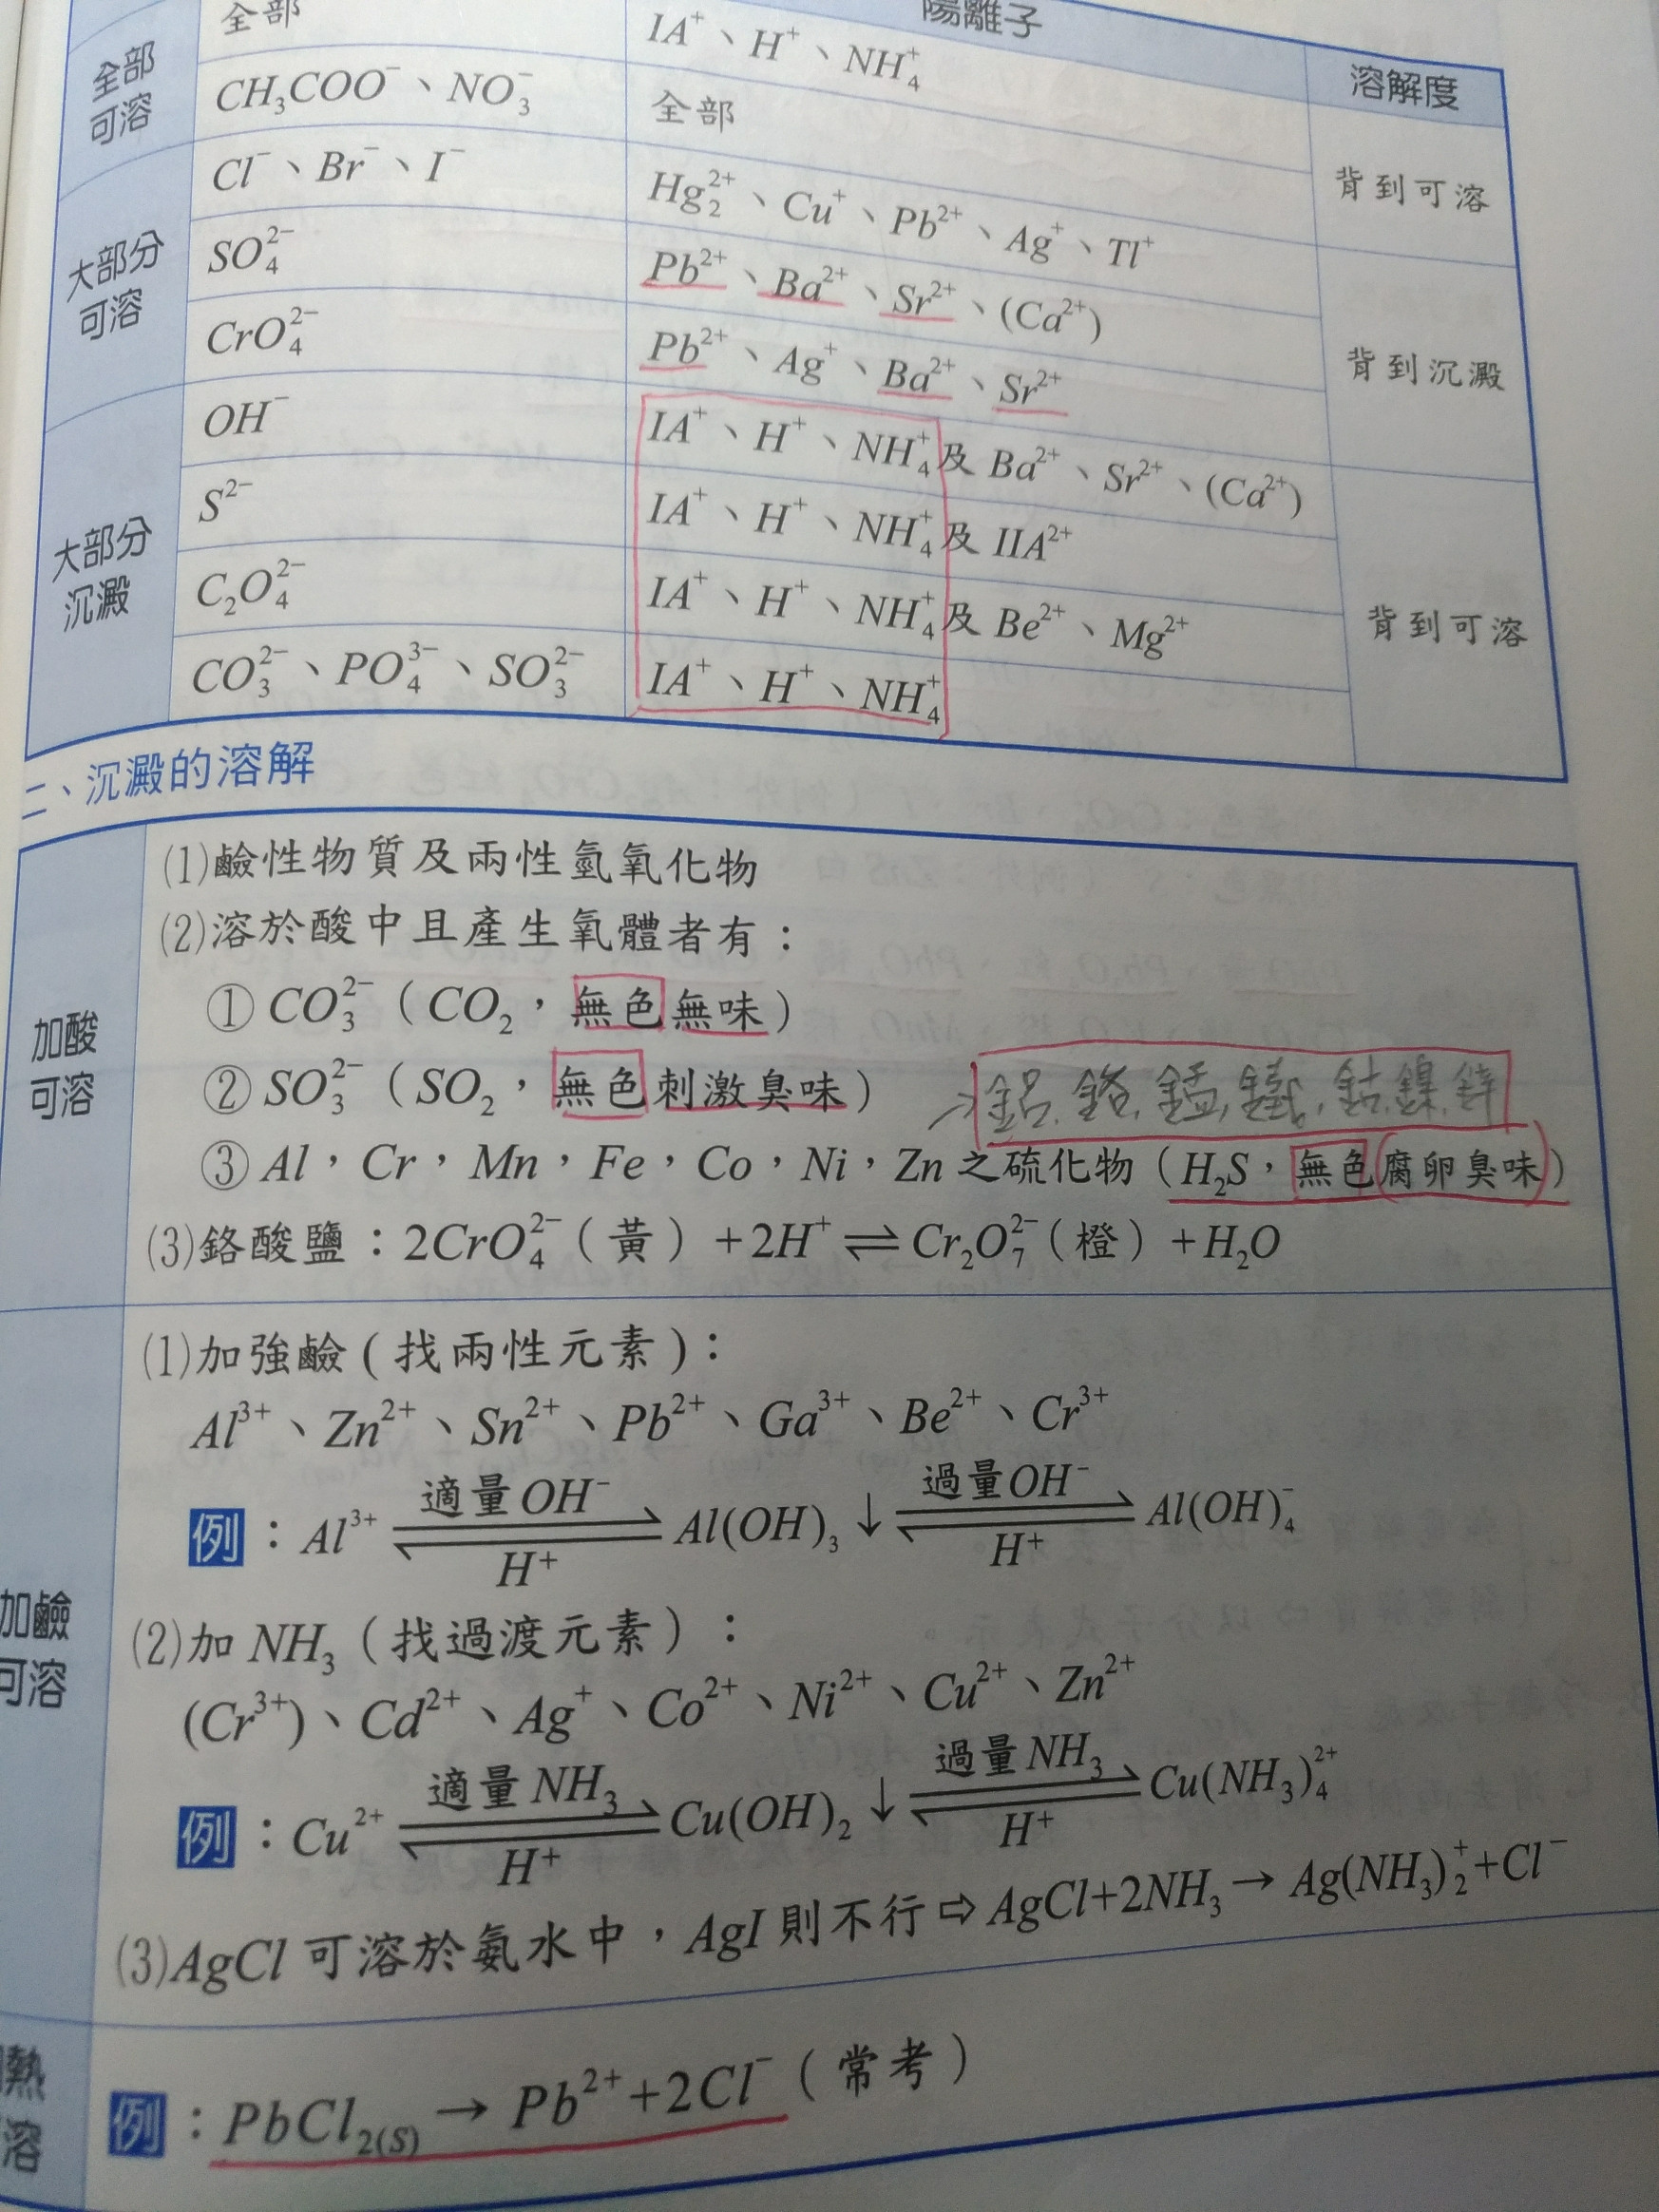 陽離子
溶解度
全部可溶
全部
IA⁺、H⁺、NH₄⁺
背到可溶
CH₃COO⁻、NO₃⁻
全部
大部分可溶
Cl⁻、Br⁻、I⁻
Hg₂²⁺、Cu⁺、Pb²⁺、Ag⁺、Tl⁺
背到沉澱
SO₄²⁻
Pb²⁺、Ba²⁺、Sr²⁺、(Ca²⁺)
CrO₄²⁻
Pb²⁺、Ag⁺、Ba²⁺、Sr²⁺
大部分沉澱
OH⁻
IA⁺、H⁺、NH₄⁺及 Ba²⁺、Sr²⁺、(Ca²⁺)
背到可溶
S²⁻
IA⁺、H⁺、NH₄⁺及 IIA²⁺
C₂O₄²⁻
IA⁺、H⁺、NH₄⁺及 Be²⁺、Mg²⁺
CO₃²⁻、PO₄³⁻、SO₃²⁻
IA⁺、H⁺、NH₄⁺
二、沉澱的溶解
加酸可溶
(1)鹼性物質及兩性氫氧化物
(2)溶於酸中且產生氧體者有：
① CO₃²⁻（CO₂，無色無味）
② SO₃²⁻（SO₂，無色刺激臭味）
→鋁,鉻,錳,鐵,鈷,鎳,鋅
③ Al，Cr，Mn，Fe，Co，Ni，Zn 之硫化物（H₂S，無色腐卵臭味）
(3)鉻酸鹽：2CrO₄²⁻（黃）+2H⁺⇌Cr₂O₇²⁻（橙）+H₂O
加鹼可溶
(1)加強鹼(找兩性元素)：
Al³⁺、Zn²⁺、Sn²⁺、Pb²⁺、Ga³⁺、Be²⁺、Cr³⁺
適量OH⁻ 過量OH⁻
例：Al³⁺ ⇌ Al(OH)₃↓ ⇌ Al(OH)₄⁻
H⁺ H⁺
(2)加 NH₃（找過渡元素）：
(Cr³⁺)、Cd²⁺、Ag⁺、Co²⁺、Ni²⁺、Cu²⁺、Zn²⁺
適量NH₃ 過量NH₃
例：Cu²⁺ ⇌ Cu(OH)₂↓ ⇌ Cu(NH₃)₄²⁺
H⁺ H⁺
(3)AgCl 可溶於氨水中，AgI 則不行⇨AgCl+2NH₃→Ag(NH₃)₂⁺+Cl⁻
熱
溶
例：PbCl₂(S)→Pb²⁺+2Cl⁻（常考）